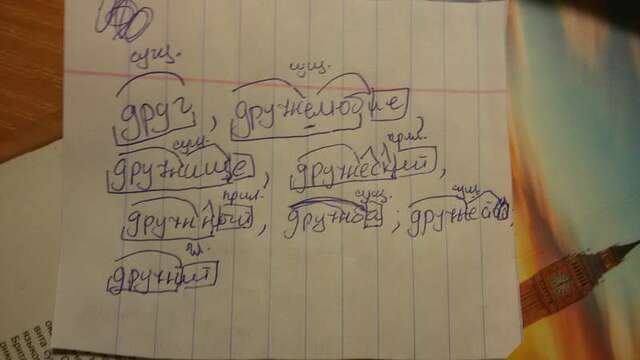 сущ. сущ.
друг, дружелюбие,
сущ. прил.
дружище, дружеский,
прил. сущ. сущ.
дружный, дружба;
гл.
дружит